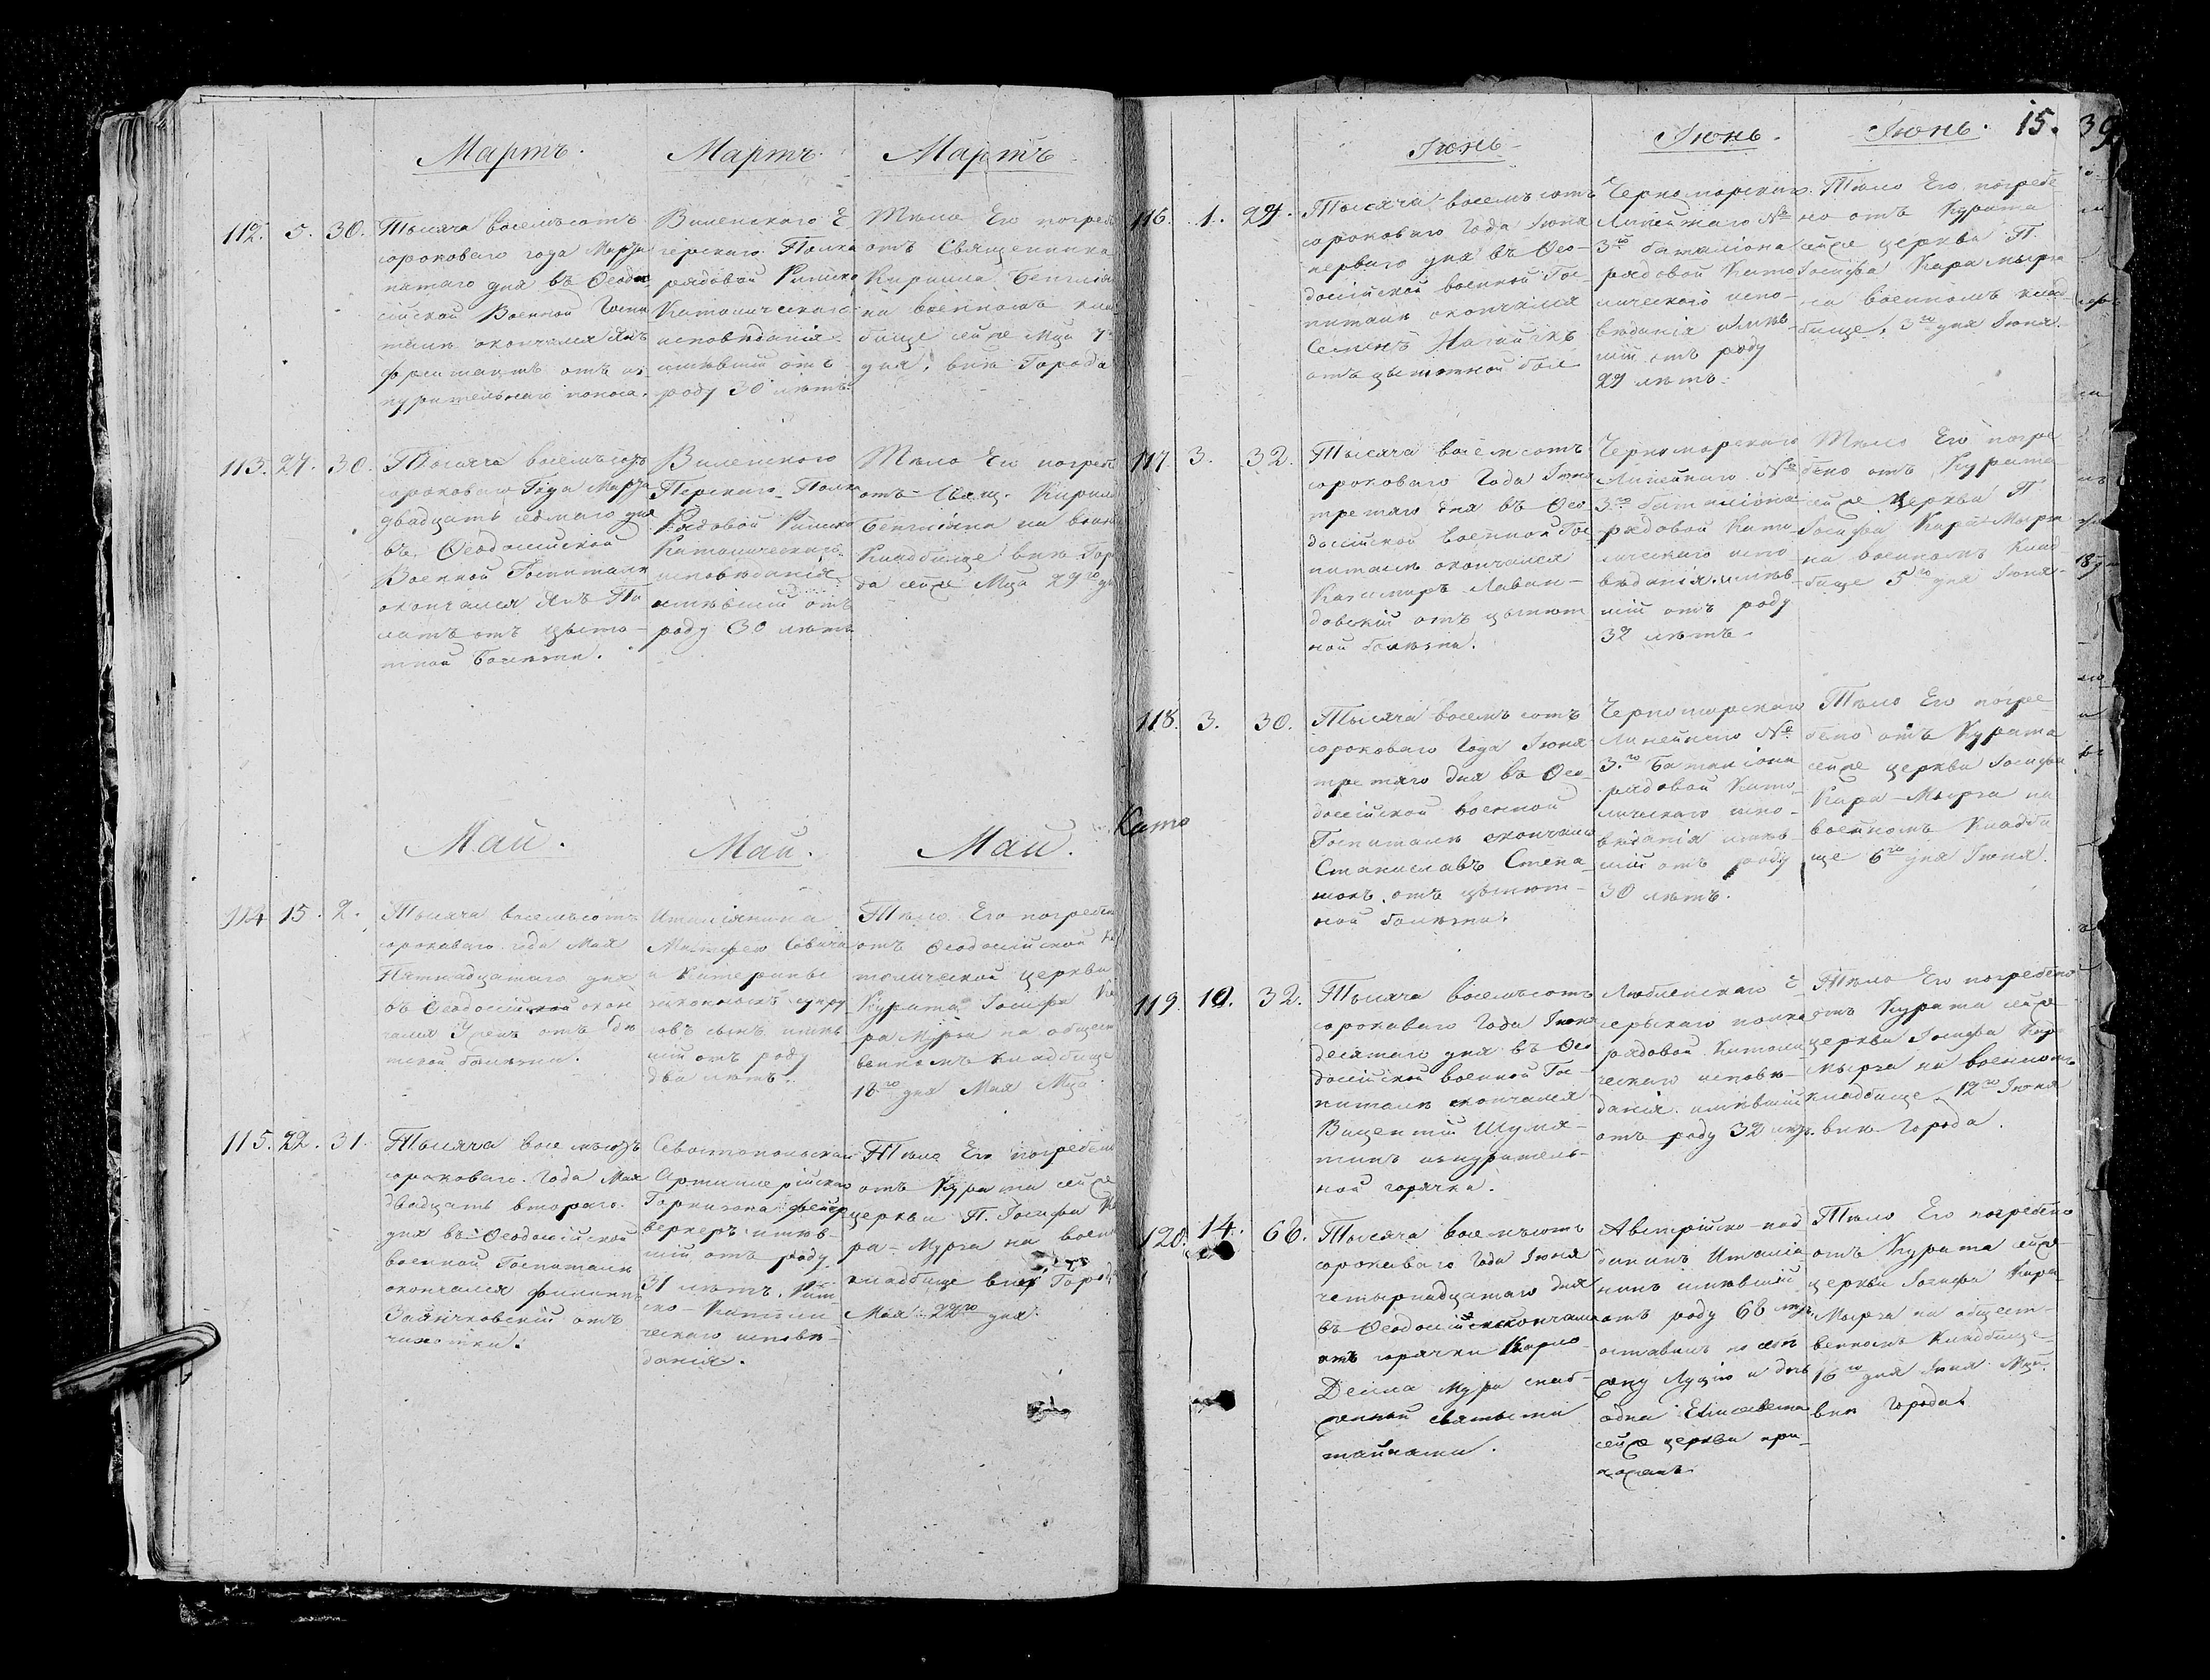 Мартъ.
Мартъ.
Мартъ
112. 5. 30.
Тысяча восемьсотъ
сороковаго года Марта
пятаго дня въ Ѳеодо
сійской Военной Госпи
талѣ окончался Янъ
отъ из
нурительнаго поноса.
Виленскаго Е
герскаго Полка
рядовой Римско
Католическаго
исповѣданія
имѣвшій отъ
роду 30 лѣтъ.
Тѣло Его погреб
отъ Священника
Кирилла
на военномъ клад
бище сей же Мца 7
дня, внѣ Города
113. 27. 30.
Тысяча восемьсотъ
сороковаго Года Марта
двадцать седмаго дня
въ Ѳеодосійской
Военной Госпиталѣ
окончался Янъ
отъ цынго
тной болѣзни.
Виленского
Полка
Рядовой Римско
Католическаго
исповѣданія
имѣвшій отъ
роду 30 лѣтъ
Тѣло Его погреб
отъ Свящ. Кирил
на воен
Кладбище внѣ Гор
да сей же Мца 29го дн
Май.
Май.
Май.
114 15. 2.
Тысяча восемьсотъ
сороковаго года Мая
Пятнадцатаго дня
въ Ѳеодосійской окон
чался отъ дѣ
тской болѣзни.
Италіянина
и Катерины
законныхъ супру
говъ сынъ имѣв
шій отъ роду
два лѣтъ.
Тѣло Его погребен
отъ Ѳеодосійской Ка
толической церкви
Курата Іосифа Ка
ра Мурза на общест
венномъ кладбище
18го дня Мая Мца.
115. 22. 31.
Тысяча восемьсотъ
сороковаго Года Мая
двадцать втораго
дня въ Ѳеодосійской
военной Госпиталѣ
окончался
отъ
чахотки.
Севастопольскаго
Артиллерійскаго
Гарнизона фейер
веркеръ имѣв
шій отъ роду
31 лѣтъ, Рим
ско-Католи
ческаго исповѣ
данія.
Тѣло Его погребен
отъ Курата сей же
церкви П. Іосифа Ка
ра-Мурза на воен
кладбище внѣ Город
Мая 22го дня.
15.
39
Іюнь
Іюнь.
Іюнь.
116. 1. 29.
Тысяча восемьсотъ
сороковаго Года Іюня
перваго дня въ Ѳео-
досійской военной Гос-
питалѣ окончался
Семенъ
отъ цынготной бол
Черноморскаго
Линейнаго №
3го баталіона
рядовой Като
лическаго испо-
вѣданія имѣв
шій отъ роду
29 лѣтъ.
Тѣло Его погребе-
но отъ Курата
сей же церкви П.
Іосифа Кара мырза
на военномъ клад-
бище, 3го дня Іюня.
117. 3. 32.
Тысяча восемсотъ
сороковаго Года Іюня
третяго дня въ Ѳео
досійской военной Гос
питалѣ окончался
Казимиръ Лаван-
довскій отъ цынгот
ной болѣзни.
Черноморскаго
Линейнаго №
3го баталіона
рядовой Като
лическаго испо
вѣданія имѣв-
шій отъ роду
32 лѣтъ.
Тѣло Его погре
бено отъ Курата
сей же церкви П
Іосифа Кара-Мырза
на военномъ Клад-
бище 5го дня Іюня
118. 3. 30.
Тысяча восемьсотъ
сороковаго Года Іюня
третяго дня въ Ѳео-
досійской военной
Госпиталѣ окончался
Станиславъ
отъ цынгот-
ной болѣзни.
Черноморскаго
Линейнаго №
3.го Баталіона
рядовой Като-
лическаго испо-
вѣданія имѣв-
шій отъ роду
30 лѣтъ.
Тѣло Его погре-
бено отъ Курата
сей же церкви Іосифа
Кара-Мырза на
военномъ Кладби
ще 6го дня Іюня.
119. 10. 32.
Тысяча восемьсотъ
сороковаго Года Іюня
десятаго дня въ Ѳео
досійской военной Гос-
питалѣ окончался
Викентій
изнуритель-
ной горячки.
Люблинскаго Е-
герьскаго полка
рядовой Католи
ческаго исповѣ-
данія имѣвшій
отъ роду 32 лѣтъ.
Тѣло Его погребено
отъ Курата сей же
церкви Іосифа Кара
мырза на военномъ
кладбище 12го Іюня
внѣ Города.
120. 14. 68.
Тысяча восемьсотъ
сороковаго Года Іюня
четырнадцатаго дня
въ Ѳеодосіи окончался
отъ горячки Карло
снаб-
женный святыми
тайнами.
Австрійско-под
данный Италія
нинъ имѣвшій
отъ роду 68 лѣтъ
оставилъ по себѣ
жену Луцію и дочь
одна Елисавета
сей же церкви при-
хожанъ.
Тѣло Его погребено
отъ Курата сей же
церкви Іосифа Кара-
Мырза на общест-
венномъ Кладбище
16го дня Іюня Мца.
внѣ Города.